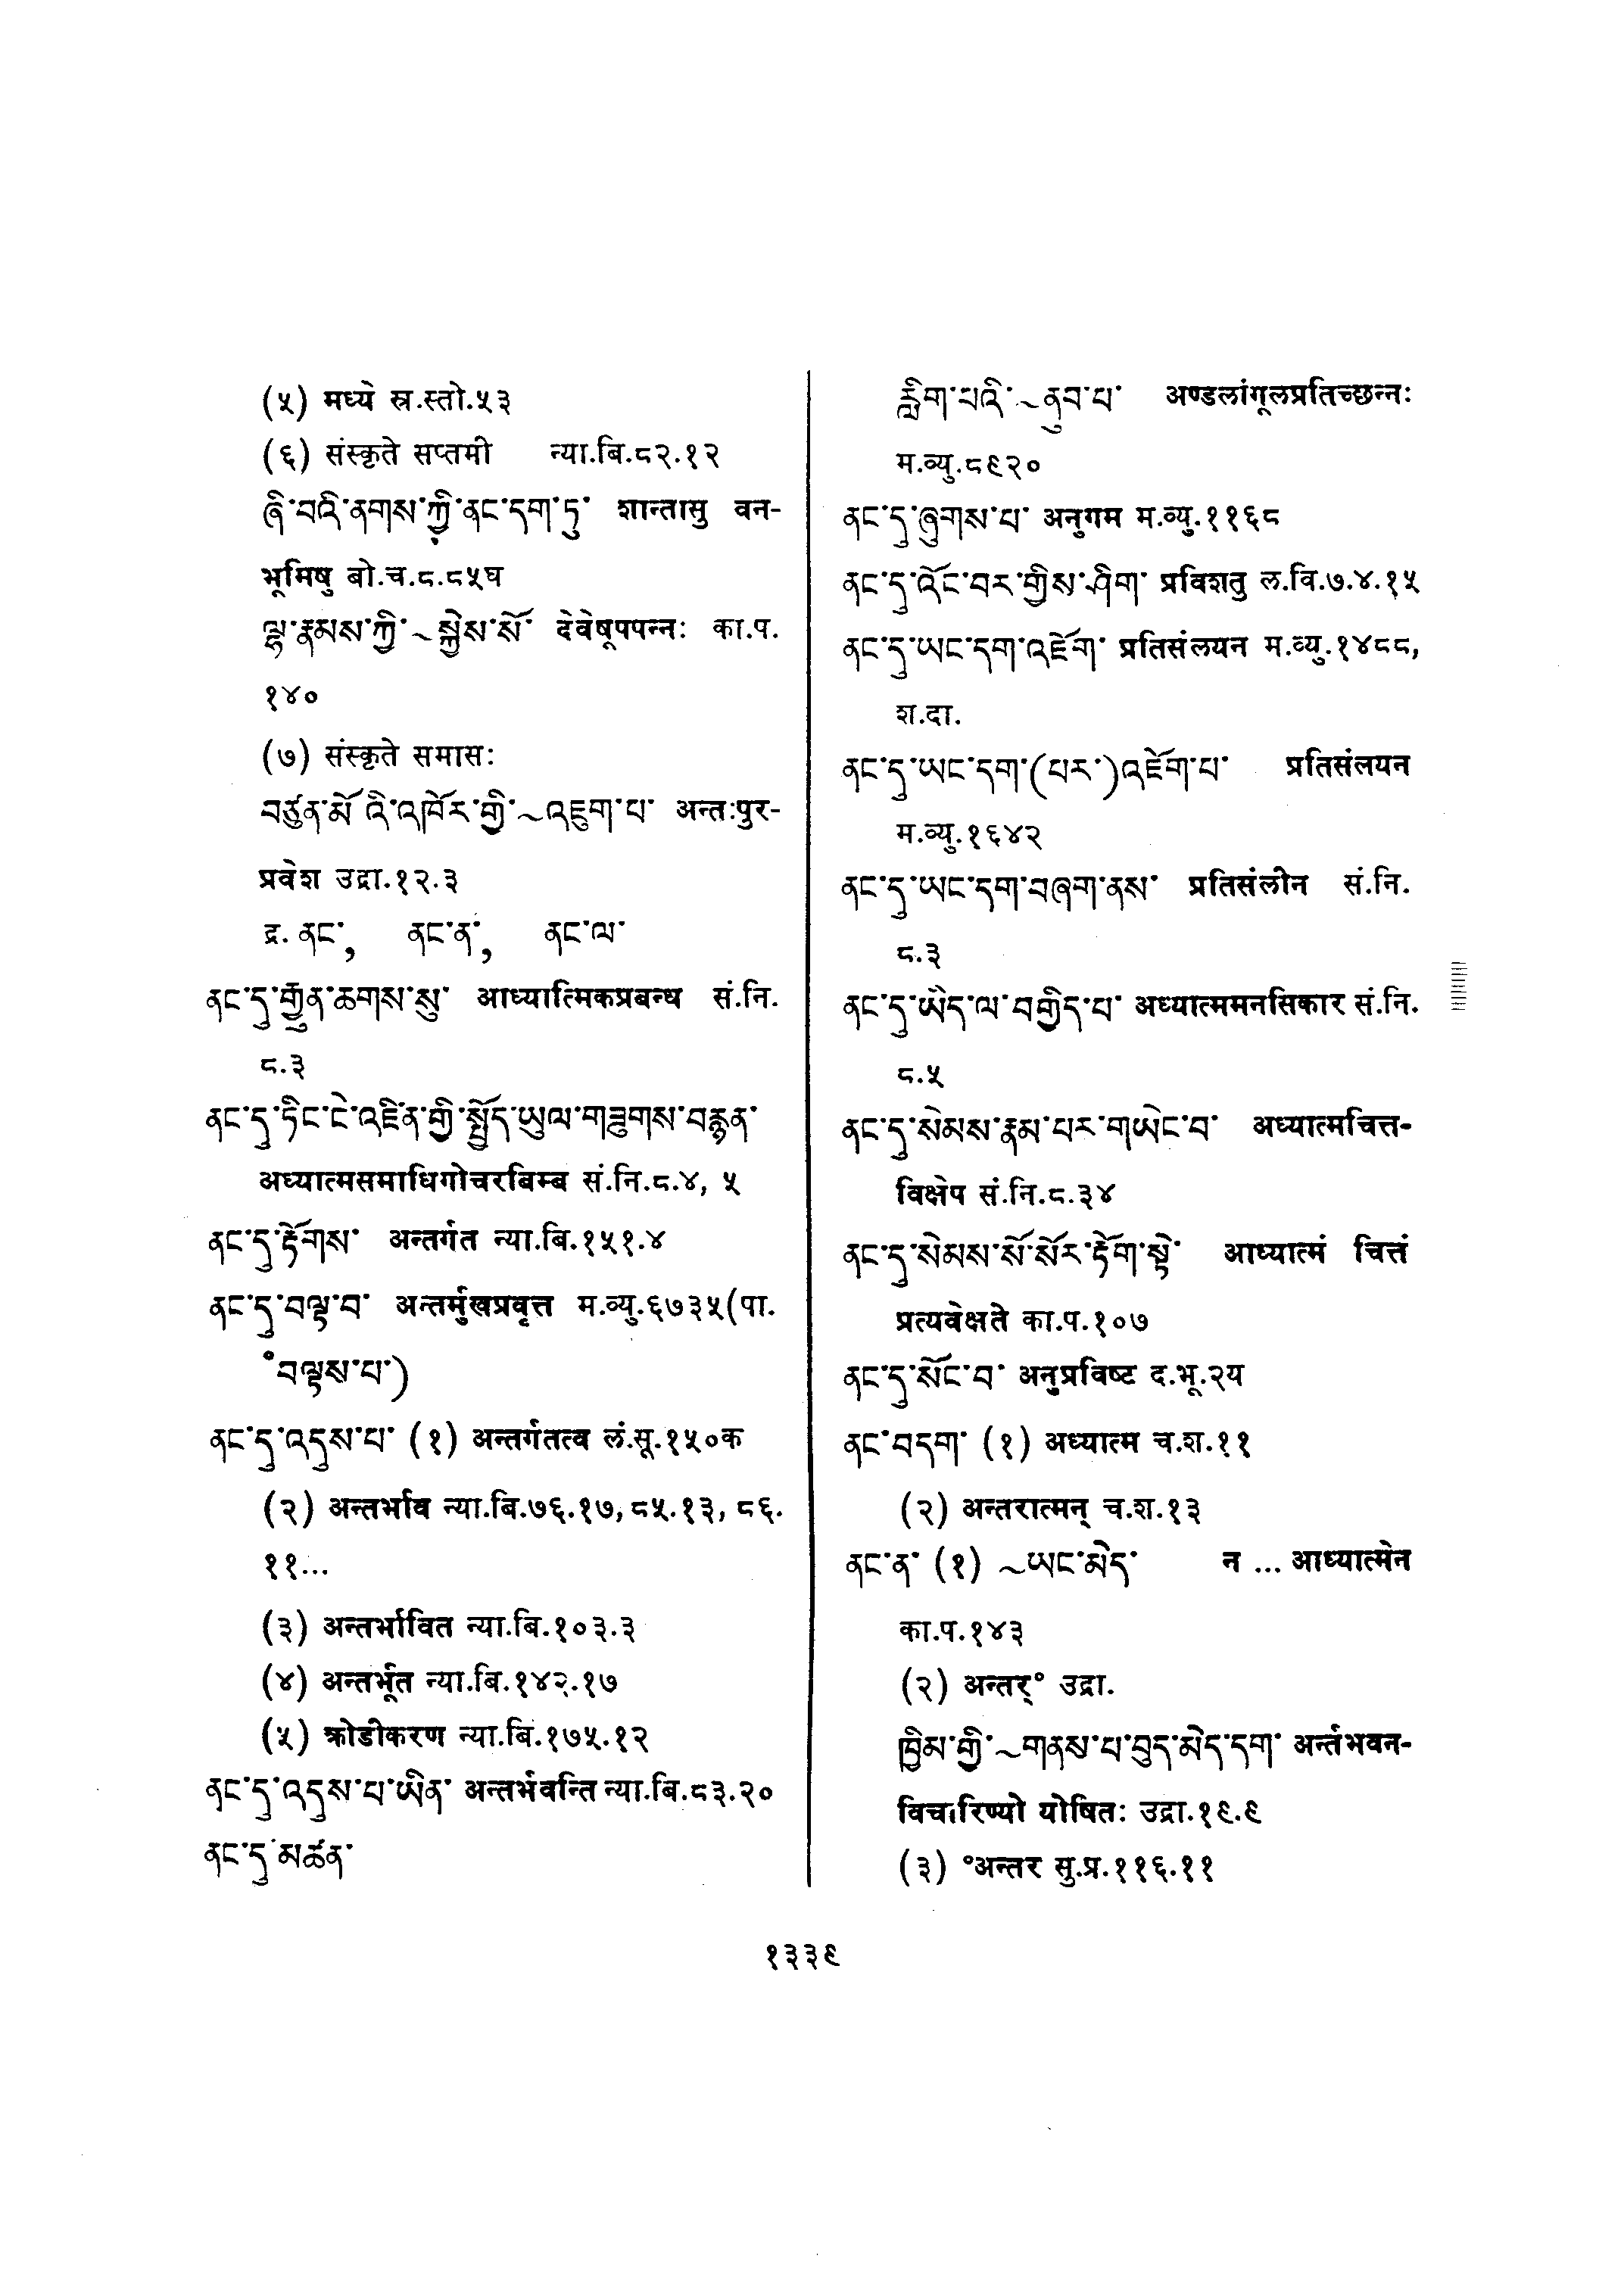 (५) मध्ये स्र.स्तो.५३
(६) संस्कृते सप्तमी न्या.बि.८२.१२
ཞི་བའི་ནགས་ཀྱི་ནང་དག་ཏུ་ शान्तासु वन-
भूमिषु बो.च.८.८५घ
ལྷ་རྣམས་ཀྱི་~སྐྱེས་སོ་ देवेषूपपन्नः का.प.
१४०
(७) संस्कृते समासः
བཙུན་མོ་འི་འཁོར་གྱི་~འཇུག་པ་ अन्तःपुर-
प्रवेश उद्रा.१२.३
द्र. ནང་, ནང་ན་, ནང་ལ་
ནང་དུ་རྒྱུན་ཆགས་སུ་ आध्यात्मिकप्रबन्ध सं.नि.
८.३
ནང་དུ་ཏིང་ངེ་འཛིན་གྱི་སྤྱོད་ཡུལ་གཟུགས་བརྙན་
अध्यात्मसमाधिगोचरबिम्ब सं.नि.८.४, ५
ནང་དུ་རྟོགས་ अन्तर्गत न्या.बि.१५१.४
ནང་དུ་བལྟ་བ་ अन्तर्मुखप्रवृत्त म.व्यु.६७३५(पा.
॰བལྟས་པ་)
ནང་དུ་འདུས་པ་ (१) अन्तर्गतत्व लं.सू.१५०क
(२) अन्तर्भाव न्या.बि.७६.१७, ८५.१३, ८६.
११...
(३) अन्तर्भावित न्या.बि.१०३.३
(४) अन्तर्भूत न्या.बि.१४२.१७
(५) क्रोडीकरण न्या.बि.१७५.१२
ནང་དུ་འདུས་པ་ཡིན་ अन्तर्भवन्ति न्या.बि.८३.२०
ནང་དུ་མཚན་
རླིག་པའི་~ནུབ་པ་ अण्डलांगूलप्रतिच्छन्नः
म.व्यु.८९२०
ནང་དུ་ཞུགས་པ་ अनुगम म.व्यु.११६८
ནང་དུ་འོང་བར་གྱིས་ཤིག་ प्रविशतु ल.वि.७.४.१५
ནང་དུ་ཡང་དག་འཇོག་ प्रतिसंलयन म.व्यु.१४८८,
श.दा.
ནང་དུ་ཡང་དག་(པར་)འཇོག་པ་ प्रतिसंलयन
म.व्यु.१६४२
ནང་དུ་ཡང་དག་བཞག་ནས་ प्रतिसंलीन सं.नि.
८.३
ནང་དུ་ཡིད་ལ་བགྱིད་པ་ अध्यात्ममनसिकार सं.नि.
८.५
ནང་དུ་སེམས་རྣམ་པར་གཡེང་བ་ अध्यात्मचित्त-
विक्षेप सं.नि.८.३४
ནང་དུ་སེམས་སོ་སོར་རྟོག་སྟེ་ आध्यात्मं चित्तं
प्रत्यवेक्षते का.प.१०७
ནང་དུ་སོང་བ་ अनुप्रविष्ट द.भू.२य
ནང་བདག་ (१) अध्यात्म च.श.११
(२) अन्तरात्मन् च.श.१३
ནང་ན་ (१) ~ཡང་མེད་ न ... आध्यात्मेन
का.प.१४३
(२) अन्तर्॰ उद्रा.
ཁྱིམ་གྱི་~གནས་པ་བུད་མེད་དག་ अर्न्तभवन-
विचारिण्यो योषितः उद्रा.१९.९
(३) ॰अन्तर सु.प्र.११६.११
१३३९